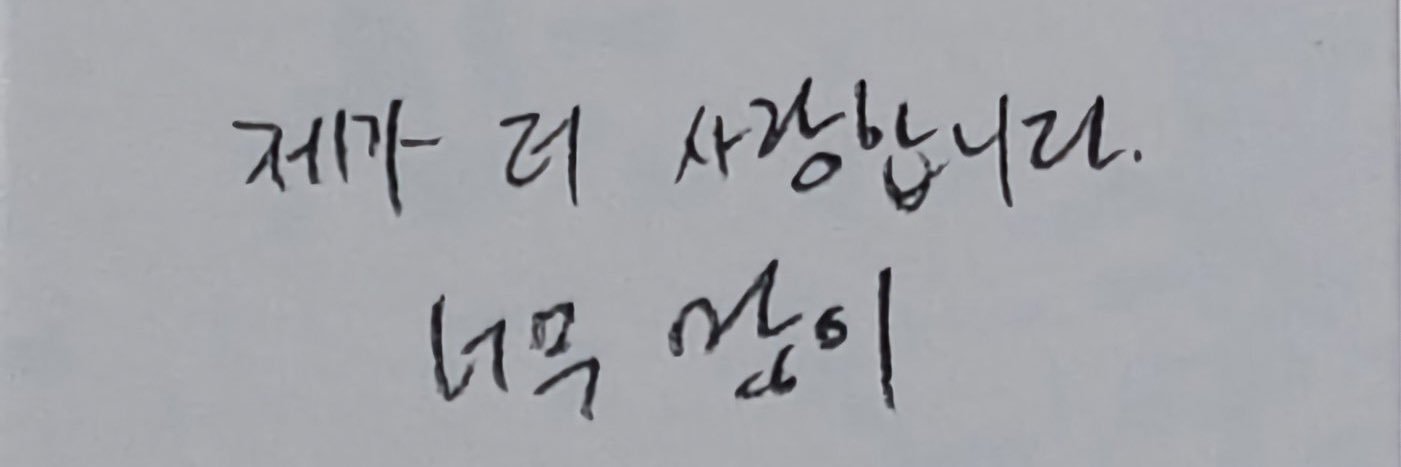 제가 더 사랑합니다.
너무 많이